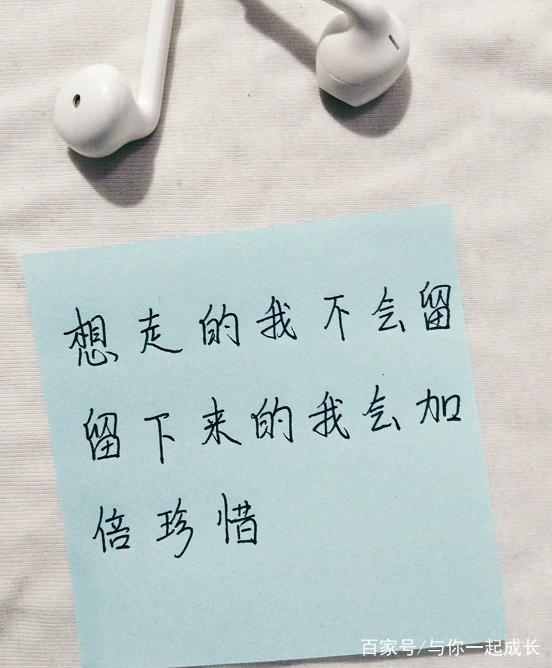 想走的我不会留
留下来的我会加
倍珍惜
百家号/与你一起成长